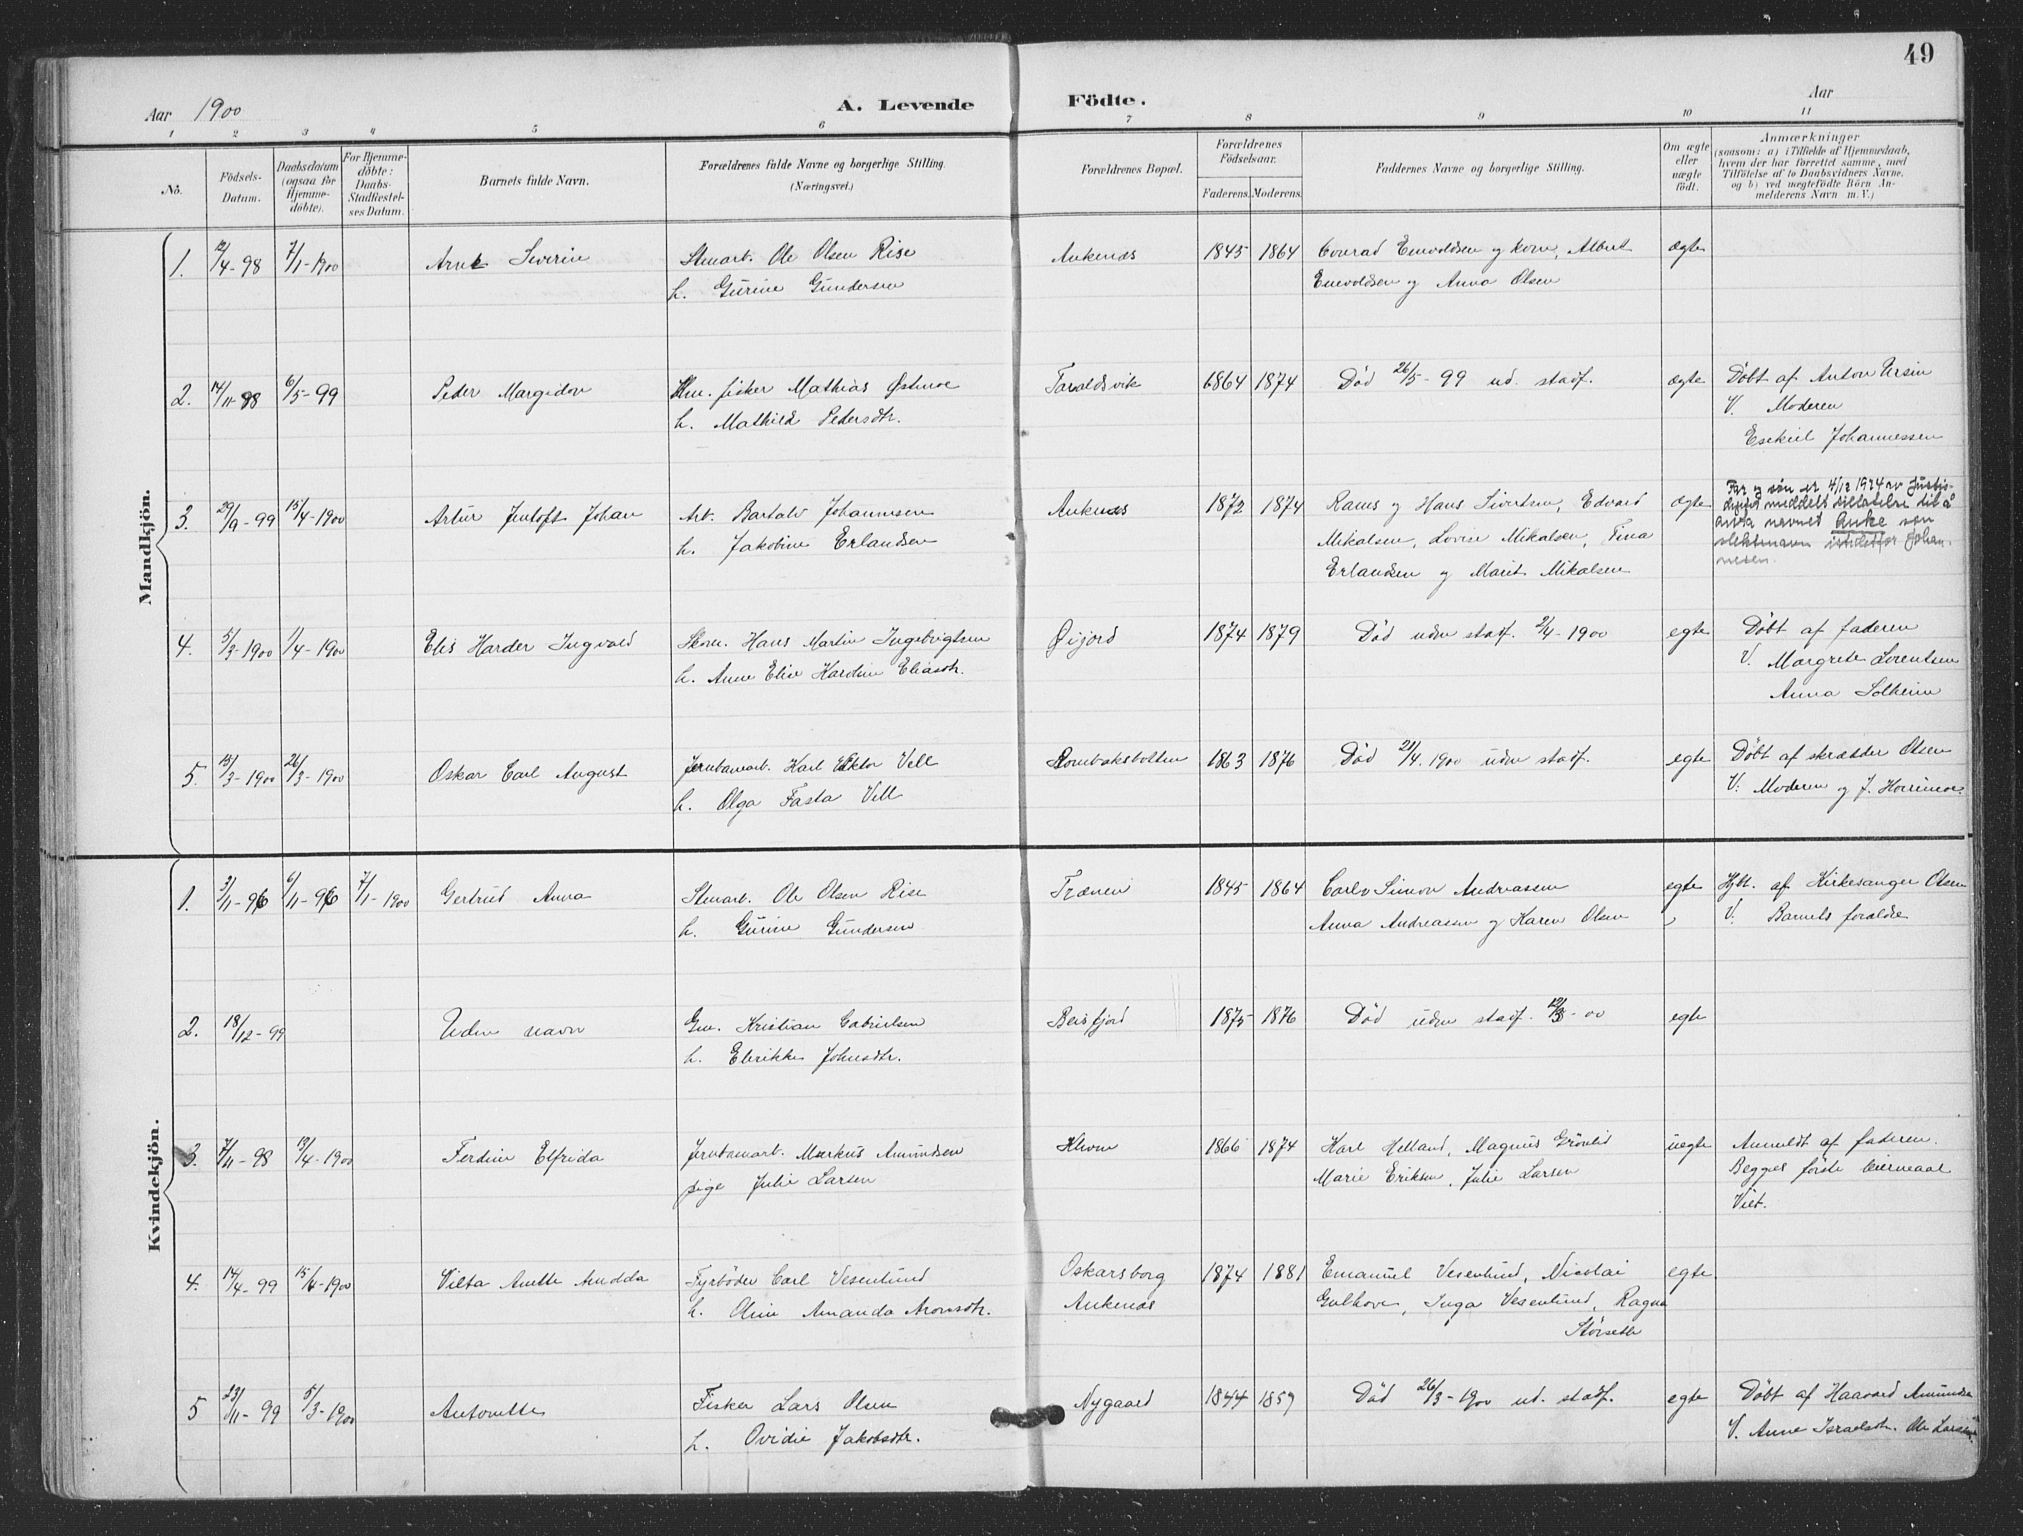 49
Aar 1900 A. Levende Födte. Aar
1 2 3 4 5 6 7 8 9 10 11
No.
Födsels-Datum.
Daabsdatum (ogsaa for Hjemme-döbte).
For Hjemme-döbte: Daabs-Stadfæstel-ses Datum.
Barnets fulde Navn.
Forældrenes fulde Navne og borgerlige Stilling. (Næringsvei.)
Forældrenes Bopæl.
Forældrenes Födselsaar. Faderens. Moderens.
Faddernes Navne og borgerlige Stilling.
Om ægte eller uægte födt.
Anmærkninger (saasom: a) i Tilfælde af Hjemmedaab, hvem der har forrettet samme, med Tilföielse af to Daabsvidners Navne, og b) ved uægtefödte Börn An-melderens Navn m. V.)
Mandkjön.
1. 12/4-98 7/1-1900 Arne Severin Stenarb. Ole Olsen Rise Ankenæs 1845 1864 Conrad Enevoldsen og kone, Albert ægte
h. Gurine Gundersen Enevoldsen og Anna Olsen
2. 14/11-98 6/5-99 Peder Margidon fisker Mathias Østmoe Taraldsvik 1864 1874 Død 26/5-99 ud. stadf. ægte Døbt af Anton Ursin
h. Mathilde Pedersdtr. V. Moderen
Esekiel Johannessen
3. 29/9-99 15/4-1900 Artur Jentoft Johan Arb. Bartolv Johannesen Ankenæs 1872 1874 Rams og Hans Sivertsen, Edvard ægte Far og søn er 4/12 1924 av Justis-
h. Jakobine Erlandsen Mikalsen, Lovise Mikalsen, Tina dep. meddelt tillatelse til å
Erlandsen og Marit Mikalsen anta navnet Anke som
slektsnavn istedetfor Johan-
nesen.
4. 5/3-1900 1/4-1900 Elis Harder Ingvald Skom. Hans Martin Ingebrigtsen Øijord 1874 1879 Død uden stadf. 2/4-1900 egte Døbt af faderen
h. Anne Elise Hardine Eliasdtr. V. Margrete Lorentsen
Anna Solheim
5 13/3-1900 26/3-1900 Oskar Carl August Jernbanearb. Karl Viktor Vell Rombaksbotten 1863 1876 Død 21/4.1900 uden stadf. egte Døbt af skrædder Olsen
h. Olga Fasta Vell V: Moderen og J.
Kvindekjön.
1. 3/11-96 6/11-96 7/1-1900 Gertrud Anna Stenarb. Ole Olsen Rise Trænen 1845 1864 Carl Simon Andreassen egte Hjbt. af Kirkesanger Olsen
h. Gurine Gundersen Anna Andreassen og Karen Olsen V. Barnets forældre
2. 18/12-99 Uden navn Gm. Kristian Gabrielsen Beisfjord 1875 1876 Død uden stadf. 12/3-00 egte
h. Elirikke Johnsdtr.
3. 7/11-98 13/4-1900 Ferdine Elfrida Jernbanearb. Markus Amundsen 1866 1874 Karl Helland, Magnus Grønlid uegte Anmeldt af faderen.
pige Julie Larsen Marie Eriksen, Julie Larsen Begges første leiermaal
Viet.
4. 14/4-99 15/4-1900 Vilta Anette Amdda Fyrbøder Carl Vesenlund Oskarsborg 1874 1881 Emanuel Vesenlund, Nicolai egte
h. Oline Amanda Aronsdtr. Ankenæs Gulhove, Inga Vesenlund, Ragna
Størseth
5 23/11-99 5/3-1900 Antonette Fisker Lars Olsen Nygaard 1844 1859 Død 26/3-1900 ud. stadf. egte Døbt af Haavard Amundsen
h. Ovidie Jakobsdtr. V. Anne Israelsdtr. Ole Larsen